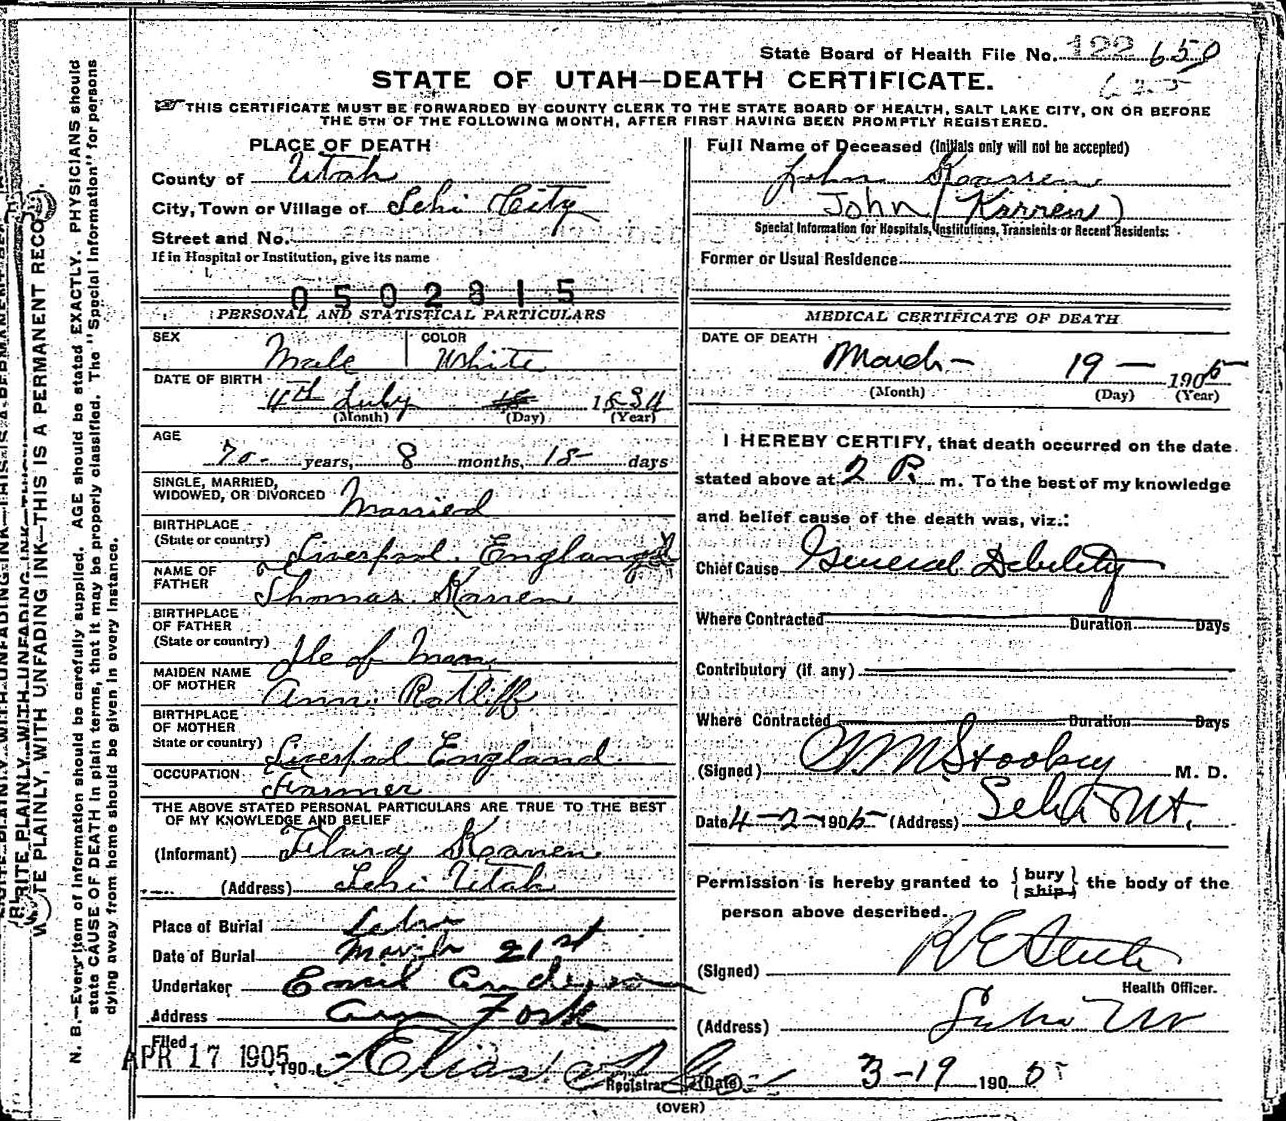 State Board of Health File No. 122 650
625
STATE OF UTAH—DEATH CERTIFICATE.
THIS CERTIFICATE MUST BE FORWARDED BY COUNTY CLERK TO THE STATE BOARD OF HEALTH, SALT LAKE CITY, ON OR BEFORE
THE 5TH OF THE FOLLOWING MONTH, AFTER FIRST HAVING BEEN PROMPTLY REGISTERED.
PLACE OF DEATH
County of Utah
City, Town or Village of Lehi City
Street and No.
If in Hospital or Institution, give its name
0502815
PERSONAL AND STATISTICAL PARTICULARS
SEX Male COLOR White
DATE OF BIRTH 4th July 1834
(Month) (Day) (Year)
AGE
70 years, 8 months, 15 days
SINGLE, MARRIED,
WIDOWED, OR DIVORCED Married
BIRTHPLACE
(State or country) Liverpool. England
NAME OF
FATHER Thomas Karren
BIRTHPLACE
OF FATHER
(State or country) Ile of Man
MAIDEN NAME
OF MOTHER Ann. Ratliff
BIRTHPLACE
OF MOTHER
State or country) Liverpool England
OCCUPATION Farmer
THE ABOVE STATED PERSONAL PARTICULARS ARE TRUE TO THE BEST
OF MY KNOWLEDGE AND BELIEF
(Informant) Karren
(Address) Lehi Utah
Place of Burial Lehi
Date of Burial March 21st
Undertaker Emil Anderson
Address Am Fork
Filed
APR 17 1905 190 Elias
Registrar
Full Name of Deceased (Initials only will not be accepted)
John Karren
John (Karren)
Special Information for Hospitals, Institutions, Transients or Recent Residents:
Former or Usual Residence
MEDICAL CERTIFICATE OF DEATH
DATE OF DEATH
March 19 — 1905
(Month) (Day) (Year)
I HEREBY CERTIFY, that death occurred on the date
stated above at 2 P. m. To the best of my knowledge
and belief cause of the death was, viz.:
Chief Cause General Debility
Where Contracted Duration Days
Contributory (if any)
Where Contracted Duration Days
(Signed) Stookey M. D.
Date 4-2-1905 (Address) Lehi Ut.
Permission is hereby granted to {bury ship} the body of the
person above described.
(Signed) Steele
Health Officer.
(Address) Lehi Ut
(Date) 3-19 1905
(OVER)
N. B.—Every item of information should be carefully supplied. AGE should be stated EXACTLY. PHYSICIANS should
state CAUSE OF DEATH in plain terms, that it may be properly classified. The "Special Information" for persons
dying away from home should be given in every instance.
WRITE PLAINLY, WITH UNFADING INK—THIS IS A PERMANENT RECORD.